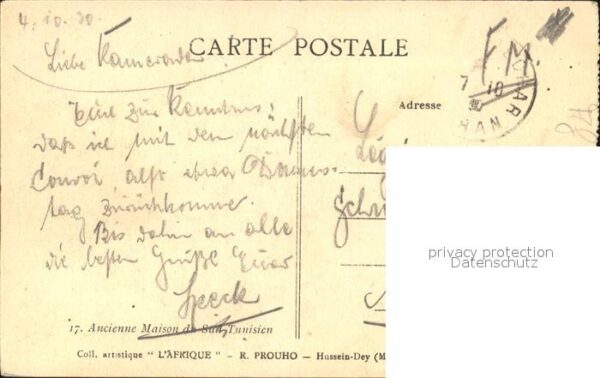 4.10.30.
Liebe Kameraden
CARTE POSTALE
F.M.
7 10
Adresse
Euch zur Kenntnis:
daß ich mit dem nächsten
Convoi, also etwa Donners-
tag zurückkomme.
Bis dahin an alle
die besten Grüße Euer
Speck
17. Ancienne Maison du Sud Tunisien
Coll. artistique "L'AFRIQUE" - R. PROUHO - Hussein-Dey (M
privacy protection
Datenschutz